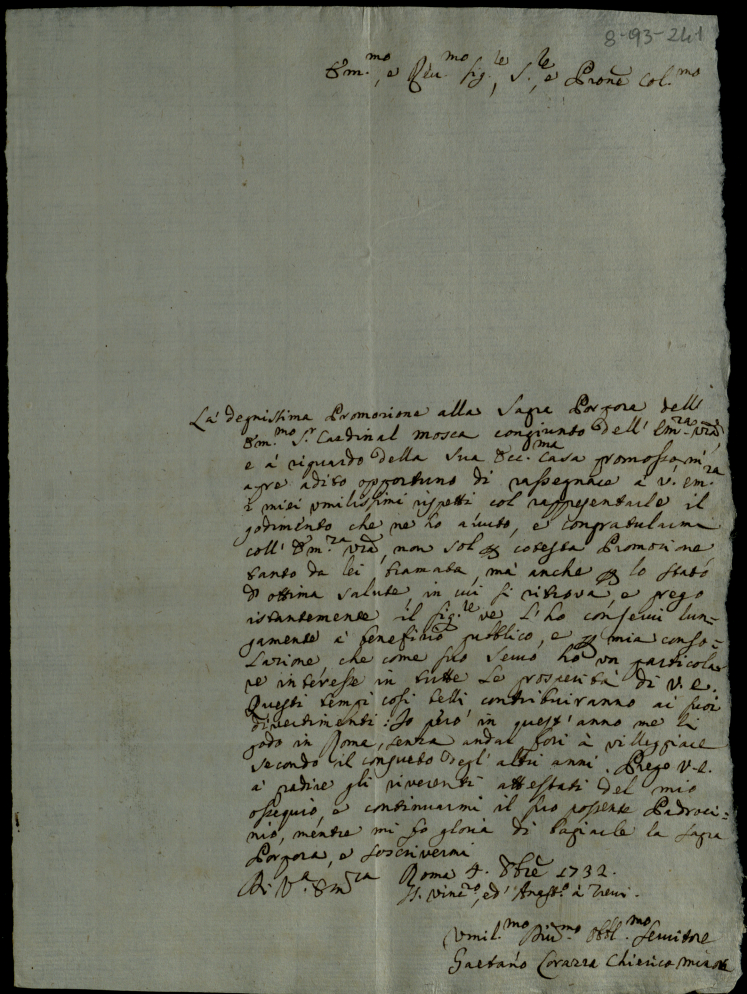 8-93-241
Em.mo, e Rev.mo Sig.re, S.re, e Prone Col.mo
La degnissima Promozione alla Sagra Porpora dell'
Em.mo S.r Cardinal Mosca congiunto dell' Em.za Vra,
e a riguardo della sua Ecc.ma Casa promosso, m'
apre adito opportuno di rassegnare a V. Em.za
i miei umilissimi rispetti col rappresentarle il
godimento che ne ho avuto, e congratularmi
coll' Em.za Vra, non sol per cotesta Promozione
tanto da lei bramata, ma anche per lo stato
d'ottima salute, in cui si ritrova, e prego
istantemente il Sig.re ve l'ho conservi lun-
gamente a benefizio pubblico, e per mia conso-
lazione, che come suo servo ho un particola-
re interesse in tutte le prosperità di V.E.
Questi tempi così belli contribuiranno ai suoi
divertimenti: Io però in quest'anno me li
godo in Roma, senza andar fori à villeggiare
secondo il consueto degl'altri anni. Prego V.E.
a gradire gli riverenti attestati del mio
ossequio, e continuarmi il suo possente Padroci-
nio, mentre mi fo gloria di bagiarle la Sagra
Porpora, e soscrivermi
Di V.a Em.za Roma 4. 8bre 1732.
SS. Vinc.o, ed Anast.o à Trevi.
Umil.mo Div.mo Obbl.mo Servitore
Gaetano Corazza Chierico Minore